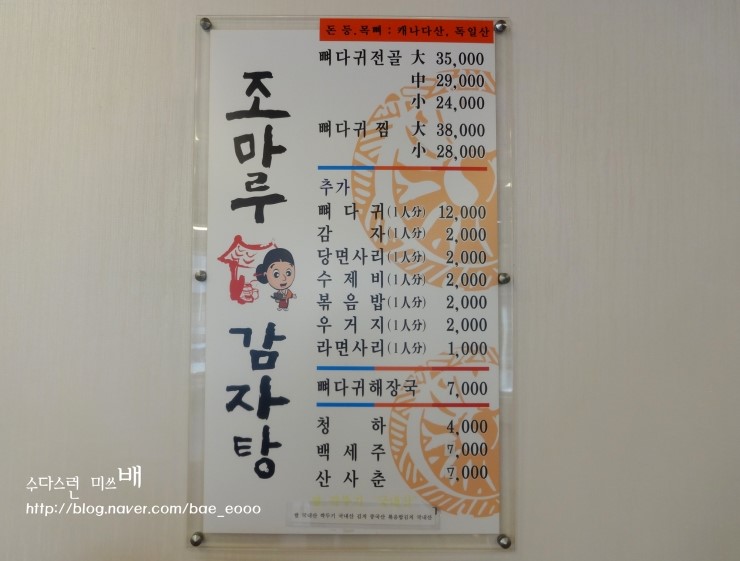 조마루
감자탕
돈 등.목뼈 : 캐나다산, 독일산
뼈다귀전골 大 35,000
中 29,000
小 24,000
뼈다귀찜 大 38,000
小 28,000
추가
뼈다귀(1人分) 12,000
감자(1人分) 2,000
당면사리(1人分) 2,000
수제비(1人分) 2,000
볶음밥(1人分) 2,000
우거지(1人分) 2,000
라면사리(1人分) 1,000
뼈다귀해장국 7,000
청하 4,000
백세주 7,000
산사춘 7,000
수다스런 미쓰배
http://blog.naver.com/bae_eooo